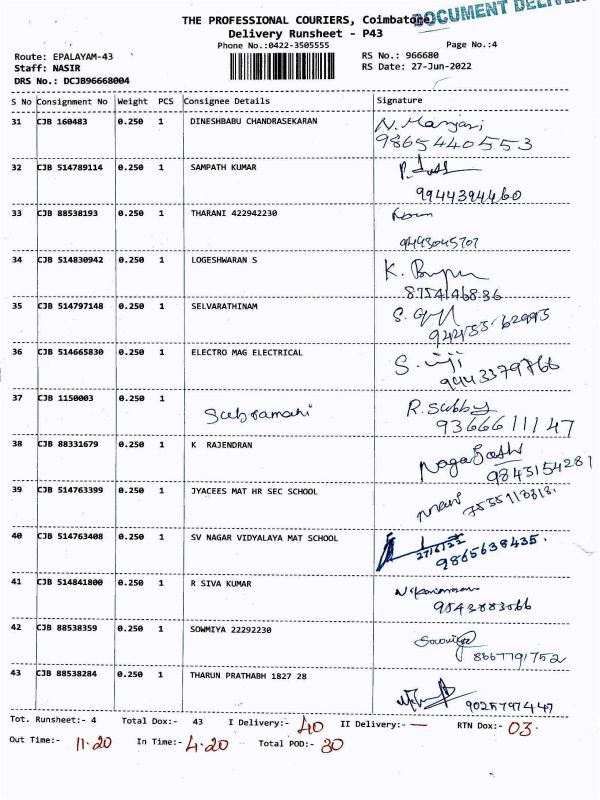 DOCUMENT DELIVER
THE PROFESSIONAL COURIERS, Coimbatore
Delivery Runsheet - P43
Phone No.:0422-3505555
Page No.:4
Route: EPALAYAM-43
RS No.: 966680
Staff: NASIR
RS Date: 27-Jun-2022
DRS No.: DCJB96668004
S No Consignment No Weight PCS Consignee Details Signature
31 CJB 160483 0.250 1 DINESHBABU CHANDRASEKARAN N. Manjari
9865440553
32 CJB 514789114 0.250 1 SAMPATH KUMAR
9944394460
33 CJB 88538193 0.250 1 THARANI 422942230
34 CJB 514830942 0.250 1 LOGESHWARAN S K.
35 CJB 514797148 0.250 1 SELVARATHINAM S.
36 CJB 514665830 0.250 1 ELECTRO MAG ELECTRICAL S. viji
9443379766
37 CJB 1150003 0.250 1 Subramani R. Subby
9366611147
38 CJB 88331679 0.250 1 K RAJENDRAN
9843154281
39 CJB 514763399 0.250 1 JYACEES MAT HR SEC SCHOOL
40 CJB 514763408 0.250 1 SV NAGAR VIDYALAYA MAT SCHOOL 27/6/22
9865638435.
41 CJB 514841800 0.250 1 R SIVA KUMAR
9843883066
42 CJB 88538359 0.250 1 SOWMIYA 22292230 Sowmiya
8667791752
43 CJB 88538284 0.250 1 THARUN PRATHABH 1827 28
9025797447
Tot. Runsheet:- 4 Total Dox:- 43 I Delivery:- 40 II Delivery:- — RTN Dox:- 03.
Out Time:- 11.20 In Time:- 4.20 Total POD:- 30